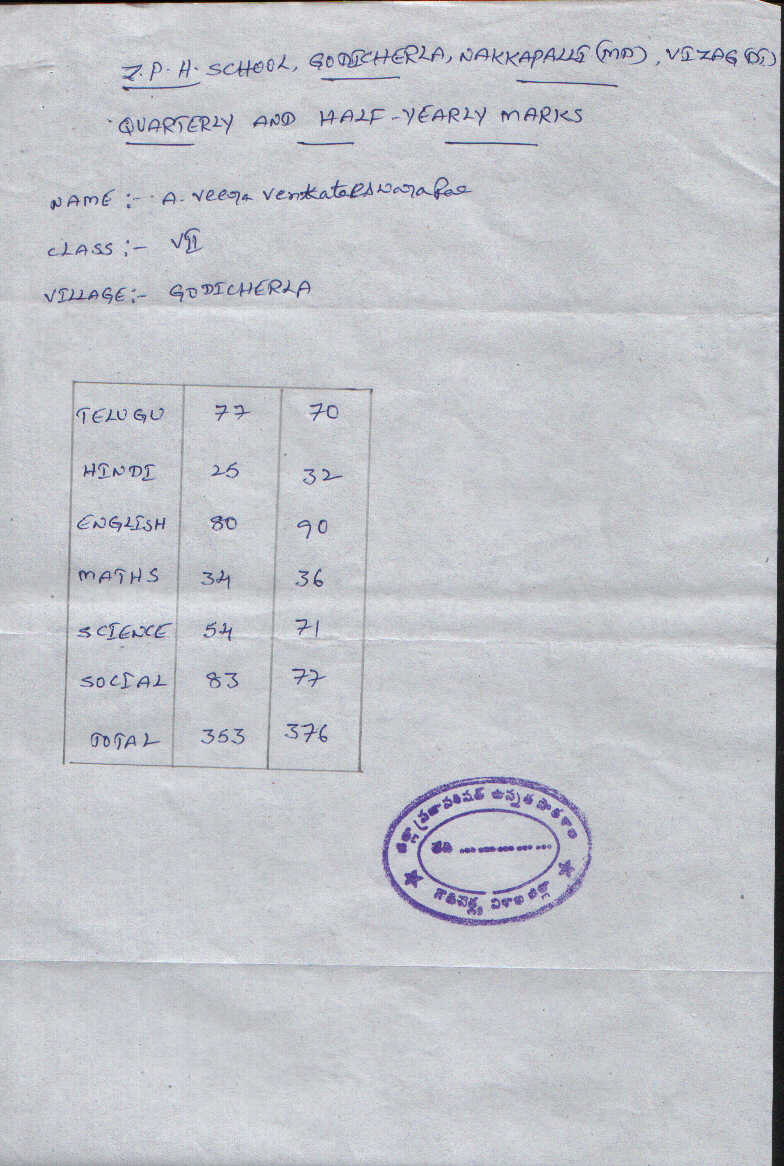 Z.P.H. SCHOOL, GODICHERLA, NAKKAPALLI (MD), VIZAG (DI)
QUARTERLY AND HALF-YEARLY MARKS
NAME :- A. Veera Venkateswara Rao
CLASS :- VII
VILLAGE :- GODICHERLA
TELUGU 77 70
HINDI 25 32
ENGLISH 80 90
MATHS 34 36
SCIENCE 54 71
SOCIAL 83 77
TOTAL 353 376
జిల్లా ప్రజాపరిషత్ ఉన్నత పాఠశాల
తేది
గొడిచెర్ల, విశాఖ జిల్లా